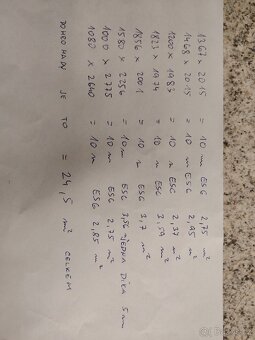 1367 x 2015 = 10 mm ESG 2,75 m²
1468 x 2015 = 10 m ESG 2,95 m²
1200 x 1983 = 10 m ESG 2,37 m²
1823 x 1974 = 10 m ESG 3,59 m²
1856 x 2001 = 10 m ESG 3,7 m²
1580 x 2256 = 10 m ESG 3,56 m² JEDNA DÍRA 5 m
1000 x 2775 = 10 m ESG 2,75 m²
1080 x 2640 = 10 m ESG 2,85 m²
DOHROMADY JE TO = 24,5 m² CELKEM